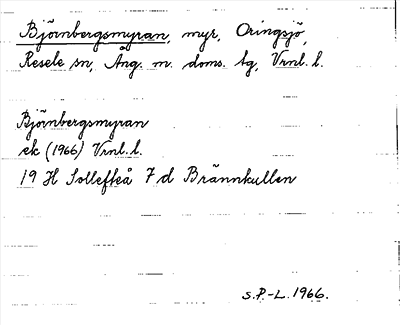 Björnbergsmyran, myr, Oringsjö,
Resele sn, Ång. m. doms. tg, Vrnl. l.
Björnbergsmyran
ek (1966) Vrnl. l.
19 H Sollefteå 7 d Brännkullen
S.P.-L. 1966.